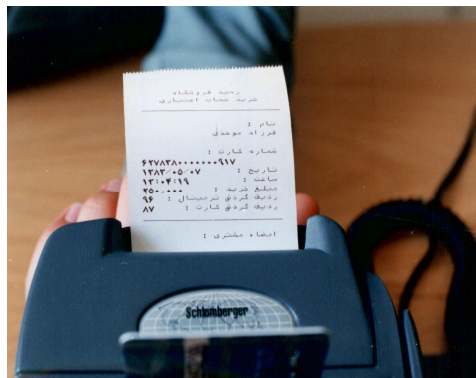 رسید فروشگاه
خرید حساب اعتباری
نام :
فرزاد موحدی
شماره کارت :
۶۲۷۸۳۸۰۰۰۰۰۰۰۹۱۷
تاریخ : ۱۳۸۳/۰۵/۰۷
ساعت : ۱۳:۰۴:۱۹
مبلغ خرید : ۲۵۰,۰۰۰
ردیف گردش ترمینال : ۹۶
ردیف گردش کارت : ۸۷
امضاء مشتری :
Schlumberger